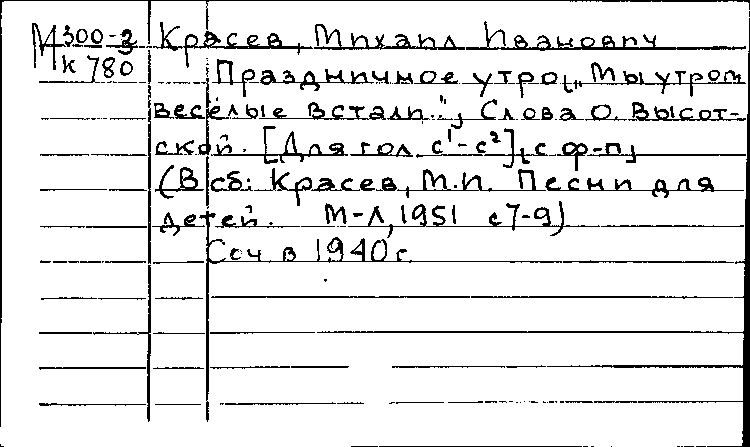 М 300-3 Красев, Михаил Иванович
К 780 Праздничное утро [„Мы утром
весёлые встали..."] Слова О. Высот-
ской. [Для гол. с¹-с²] [с ф-п]
(В сб: Красев, М.И. Песни для
детей. М-Л, 1951 с 7-9)
Соч. в 1940 г.